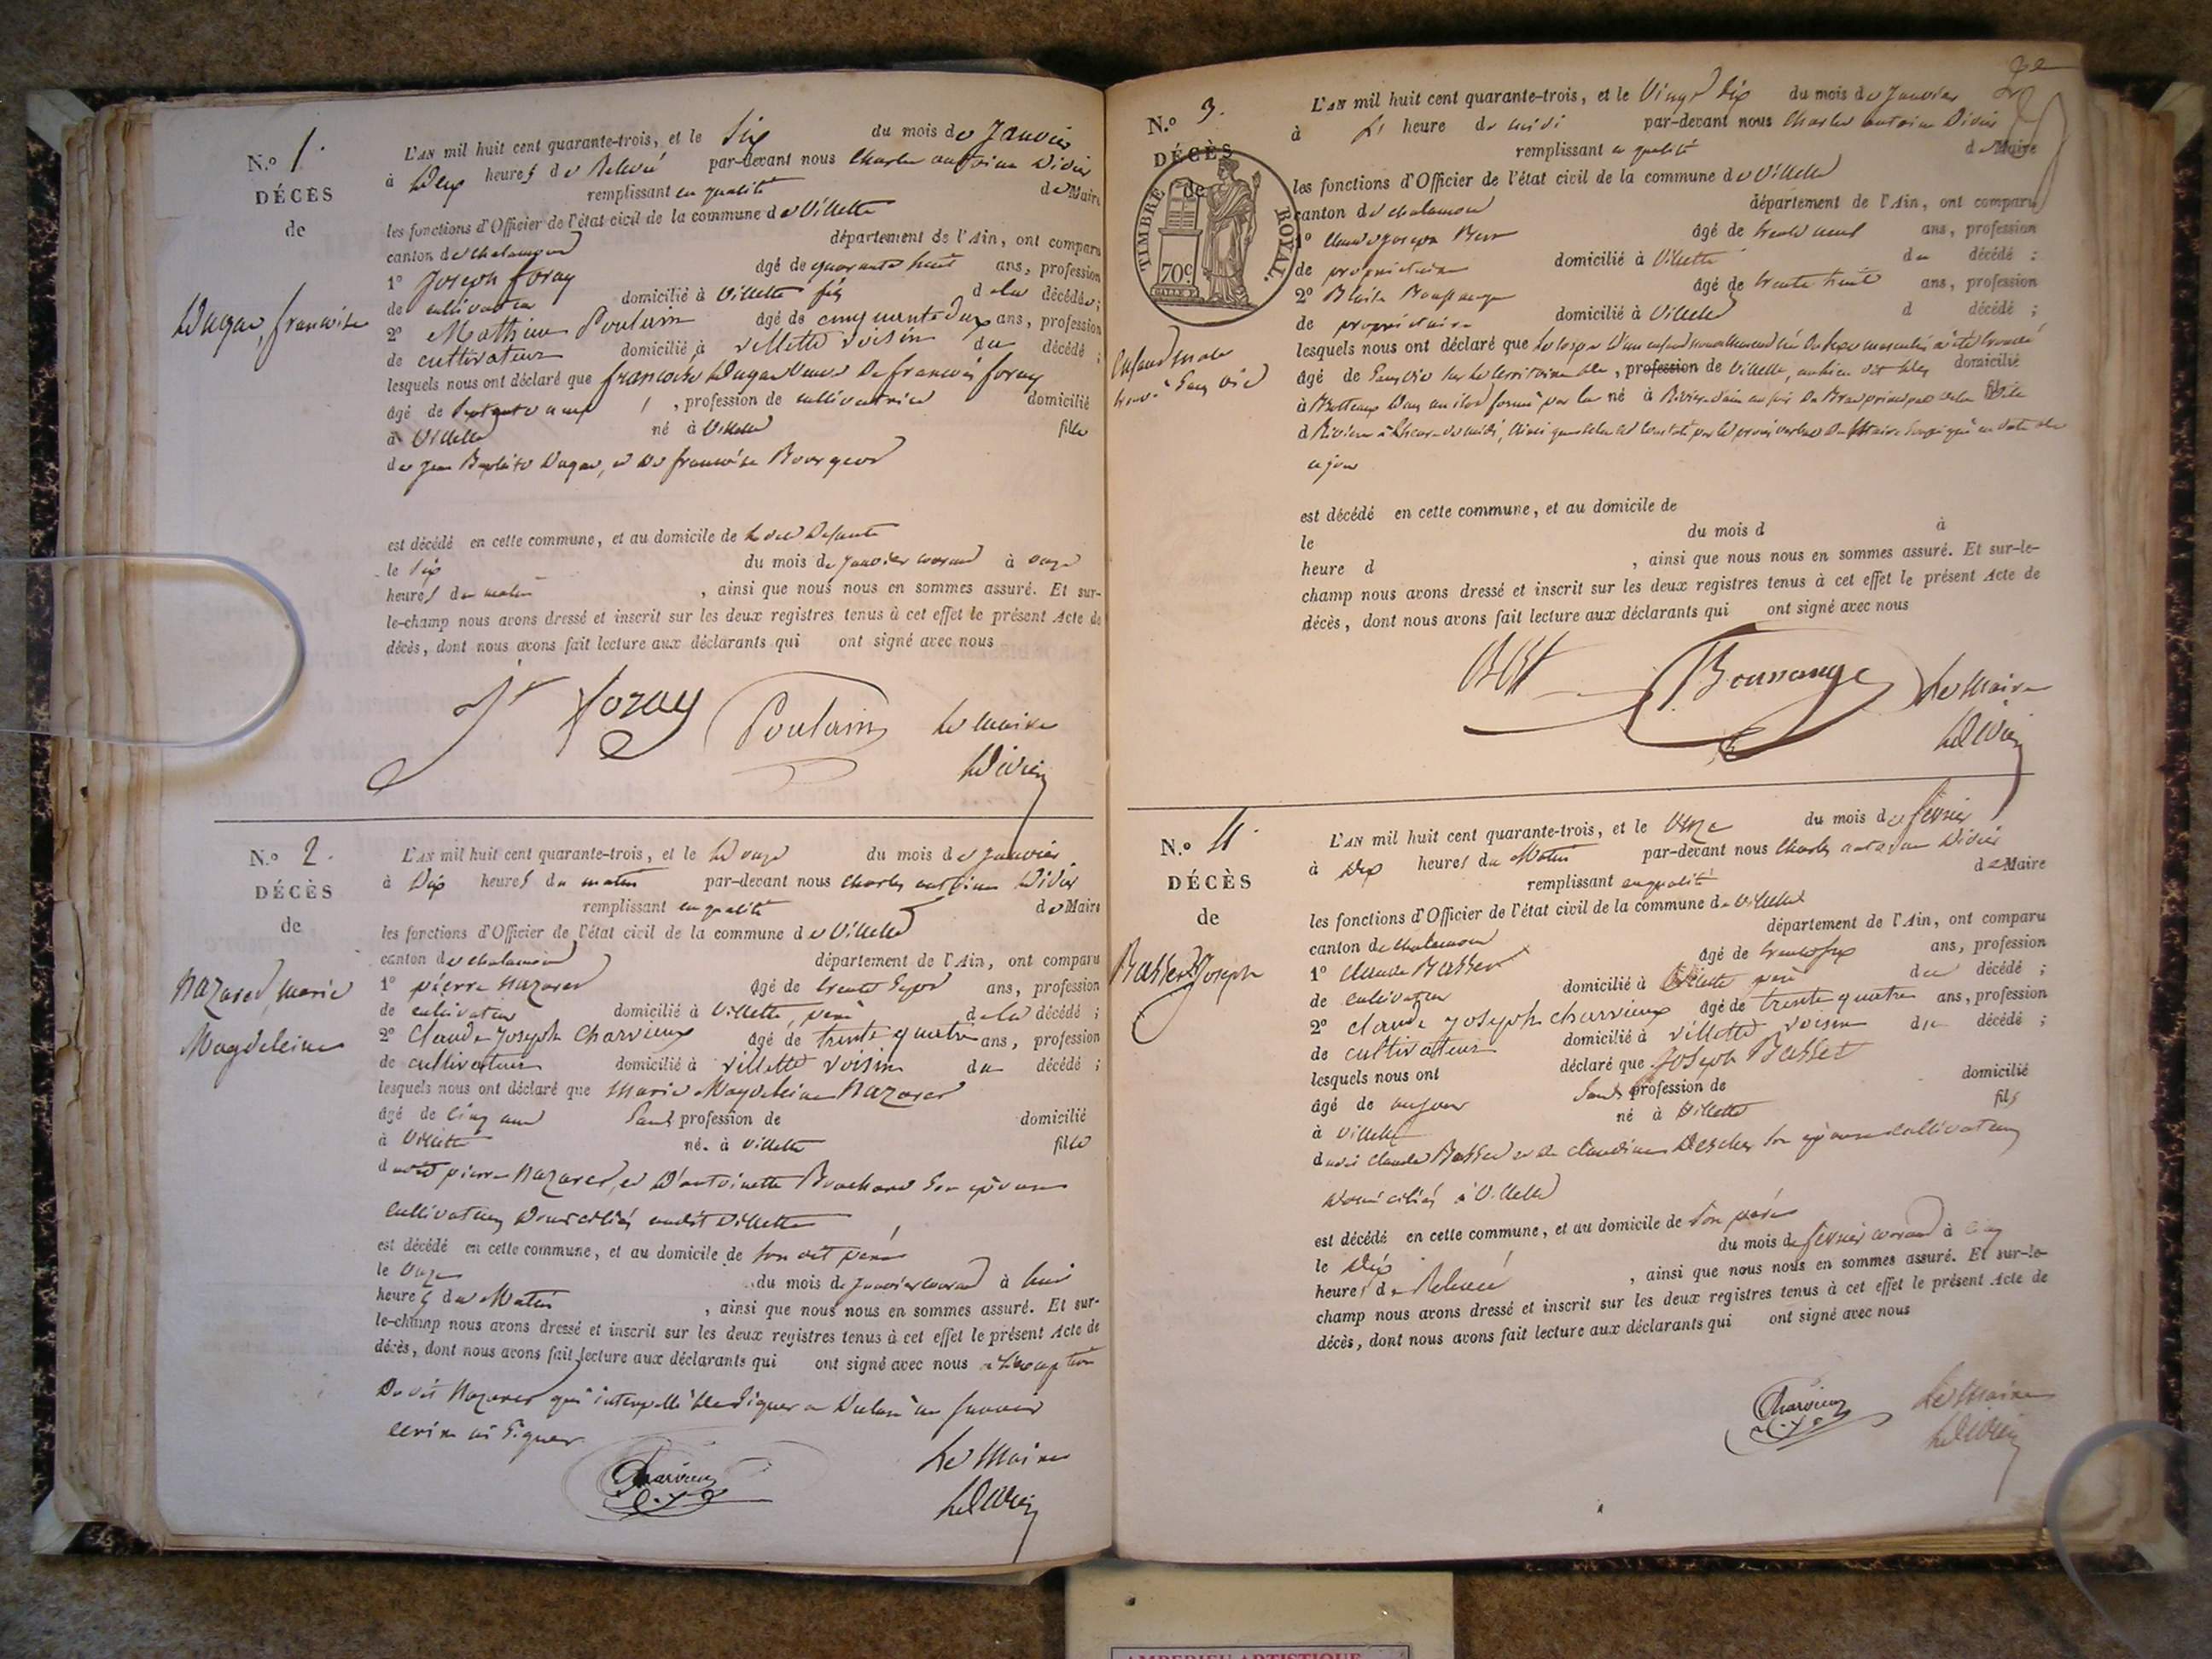 N.º 1.
DÉCÈS
de
Dugas, francoise
L'AN mil huit cent quarante-trois, et le Six du mois de Janvier
à Deux heures de Relevé par-devant nous Charles antoine Didier
remplissant en qualité de Maire
les fonctions d'Officier de l'état civil de la commune de Villette
canton de chalamont département de l'Ain, ont comparu
1º Joseph foray âgé de quarante huit ans, profession
de cultivateur domicilié à Villette fils de la décédée ;
2º Mathieu Poulain âgé de cinquante Deux ans, profession
de cultivateur domicilié à villette voisin du décédé ;
lesquels nous ont déclaré que francoise Dugas veuve De francois foray
âgé de Septante , profession de cultivatrice domicilié
à Villette né à Villette fille
de jean Baptiste Dugas, et De francoise Bourgeois
est décédé en cette commune, et au domicile de
le Six du mois de janvier courant à onze
heures du matin , ainsi que nous nous en sommes assuré. Et sur-
le-champ nous avons dressé et inscrit sur les deux registres tenus à cet effet le présent Acte de
décès, dont nous avons fait lecture aux déclarants qui ont signé avec nous
Jh foray Poulain Le maire
Didier
N.º 2.
DÉCÈS
de
Nazaret, marie
Magdeleine
L'AN mil huit cent quarante-trois, et le onze du mois de janvier
à Dix heures du matin par-devant nous Charles antoine Didier
remplissant en qualité de Maire
les fonctions d'Officier de l'état civil de la commune de Villette
canton de chalamont département de l'Ain, ont comparu
1º pierre Nazaret âgé de trente Sept ans, profession
de cultivateur domicilié à Villette, père de la décédé ;
2º Claude Joseph Charvieux âgé de trente quatre ans, profession
de cultivateur domicilié à villette voisin du décédé ;
lesquels nous ont déclaré que Marie Magdeleine Nazaret
âgé de Cinq ans Sans profession de domicilié
à Villette né à villette fille
dudit pierre Nazaret, et D'antoinette Brochard Son épouse
Cultivateurs Domiciliés audit Villette
est décédé en cette commune, et au domicile de Son dit père
le onze du mois de janvier courant à huit
heures du Matin , ainsi que nous nous en sommes assuré. Et sur-
le-champ nous avons dressé et inscrit sur les deux registres tenus à cet effet le présent Acte de
décès, dont nous avons fait lecture aux déclarants qui ont signé avec nous à l'exception
Dudit Nazaret qui interpellé de Signer a Déclaré ne Savoir
écrire ni Signer
Charvieux Le Maire
Didier
N.º 3.
DÉCÈS
de
TIMBRE ROYAL
70c
Enfant male
trouvé Sans vie
L'AN mil huit cent quarante-trois, et le Vingt Six du mois de Janvier
à heure de midi par-devant nous Charles antoine Didier
remplissant en qualité de Maire
les fonctions d'Officier de l'état civil de la commune de Villette
canton de chalamont département de l'Ain, ont comparu
1º Claude Joseph âgé de trente neuf ans, profession
de propriétaire domicilié à Villette du décédé ;
2º âgé de trente huit ans, profession
de propriétaire domicilié à Villette d décédé ;
lesquels nous ont déclaré que Le corps D'un enfant nouvellement né Du Sexe masculin a été trouvé
âgé de Sans vie Sur le territoire de , profession de Villette, au lieu dit domicilié
à Dans un ilot formé par la né à Rivière d'ain fils
d Rivière à l'heure de midi, par le procès verbal Du Maire Soussigné en Date de
ce jour
est décédé en cette commune, et au domicile de
le du mois d à
heure d , ainsi que nous nous en sommes assuré. Et sur-le-
champ nous avons dressé et inscrit sur les deux registres tenus à cet effet le présent Acte de
décès, dont nous avons fait lecture aux déclarants qui ont signé avec nous
Le Maire
Didier
N.º 4.
DÉCÈS
de
Basset Joseph
L'AN mil huit cent quarante-trois, et le Onze du mois de février
à Dix heures du Matin par-devant nous Charles antoine Didier
remplissant en qualité de Maire
les fonctions d'Officier de l'état civil de la commune de Villette
canton de chalamont département de l'Ain, ont comparu
1º Claude Basset âgé de trente Six ans, profession
de cultivateur domicilié à Villette père du décédé ;
2º claude joseph charvieux âgé de trente quatre ans, profession
de cultivateur domicilié à villette voisin du décédé ;
lesquels nous ont déclaré que Joseph Basset
âgé de un jour Sans profession de domicilié
à Villette né à Villette fils
dudit Claude Basset et de claudine Son épouse Cultivateurs
Domiciliés à Villette
est décédé en cette commune, et au domicile de Son père
le Dix du mois de février courant à Cinq
heures de Relevé , ainsi que nous nous en sommes assuré. Et sur-le-
champ nous avons dressé et inscrit sur les deux registres tenus à cet effet le présent Acte de
décès, dont nous avons fait lecture aux déclarants qui ont signé avec nous
Charvieux Le Maire
Didier